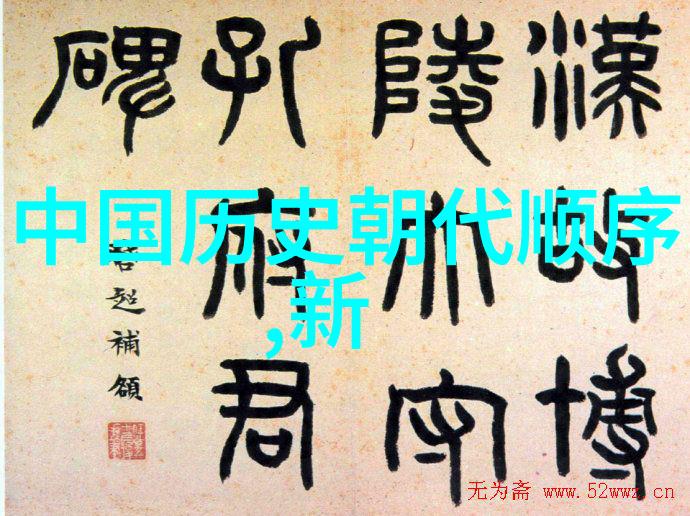 漢故博
陵太守
孔府君
碑
超補
中国历史朝代顺序
,新
无为斋 www.52wwz.cn